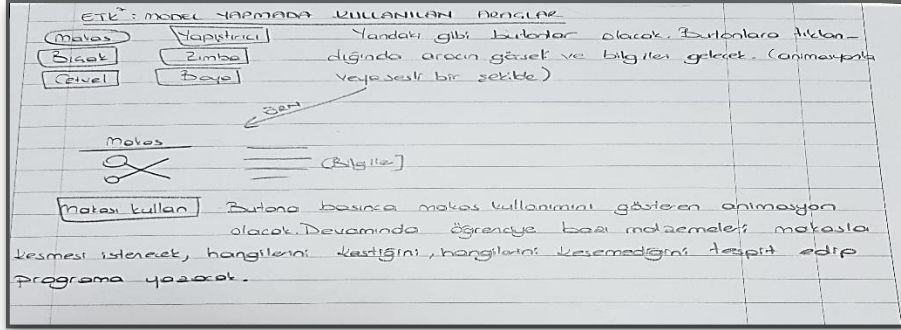 ETK²: MODEL YAPMADA KULLANILAN ARAÇLAR
Makas Yapıştırıcı Yandaki gibi butonlar olacak. Butonlara tıklan-
Bıçak Zımba dığında aracın görseli ve bilgileri gelecek. (animasyonla
Cetvel Boya veya sesli bir şekilde)
ÖRN
Makas
(Bilgiler]
Makası kullan Butona basınca makas kullanımını gösteren animasyon
olacak. Devamında öğrenciye bazı malzemeleri makasla
kesmesi istenecek, hangilerini kestiğini, hangilerini kesemediğini tespit edip
programa yazacak.